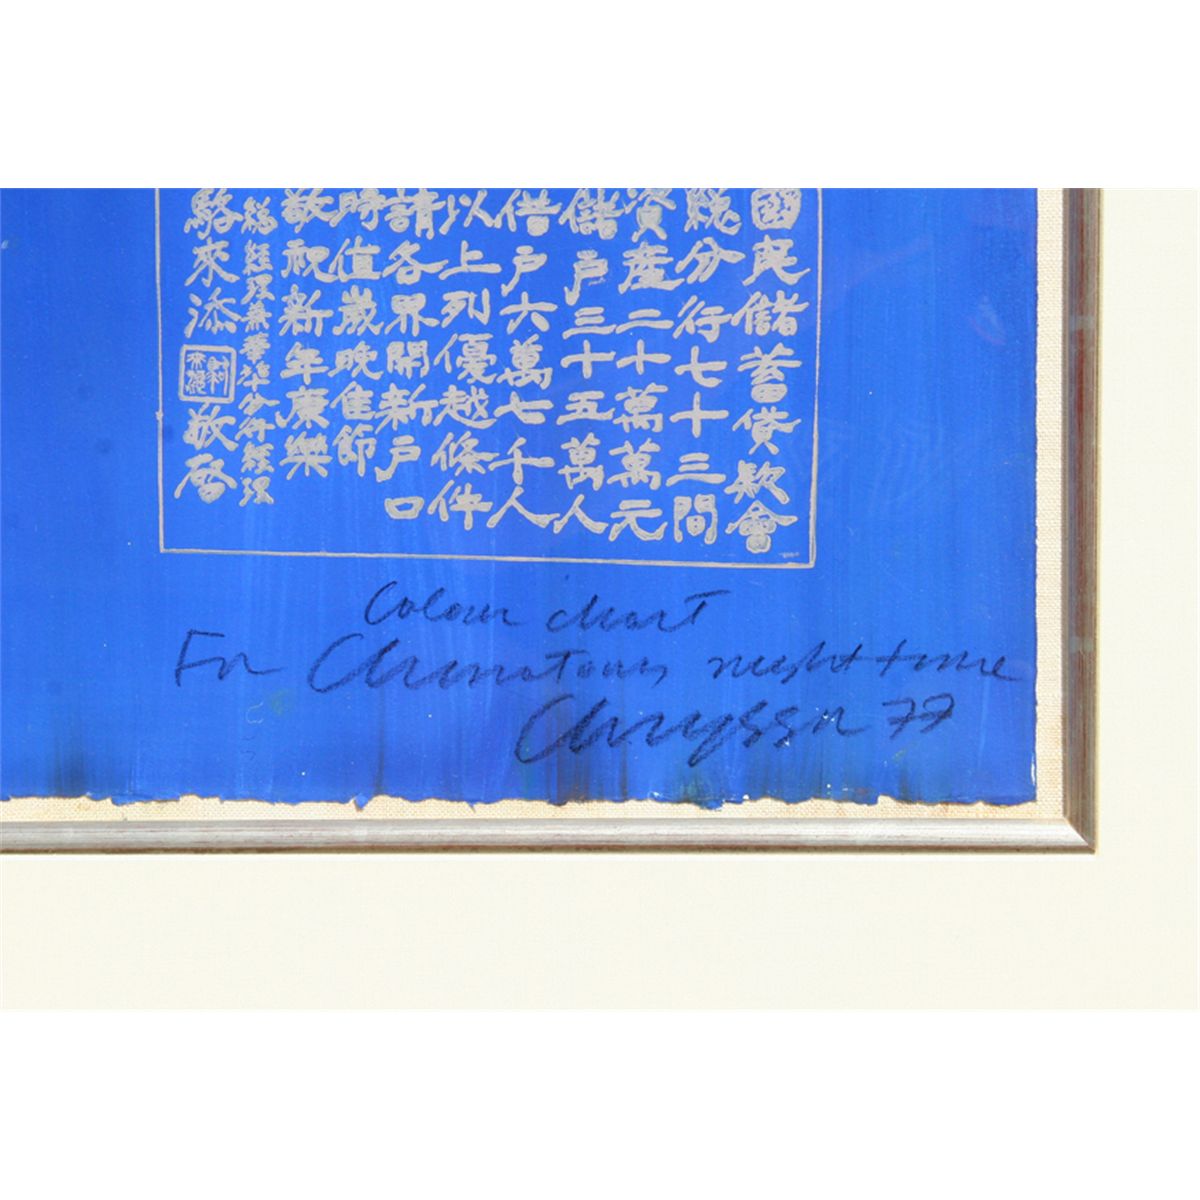 國民儲蓄貸款會
總分行七十三間
資產二十萬萬元
儲戶三十五萬人
借戶六萬七千人
以上列優越條件
請各界開新戶口
時值歲晚佳節
敬祝新年康樂
總經理兼華埠分行經理
駱來添 敬啓
Colour chart
For Chinatown night time
Chryssa 77